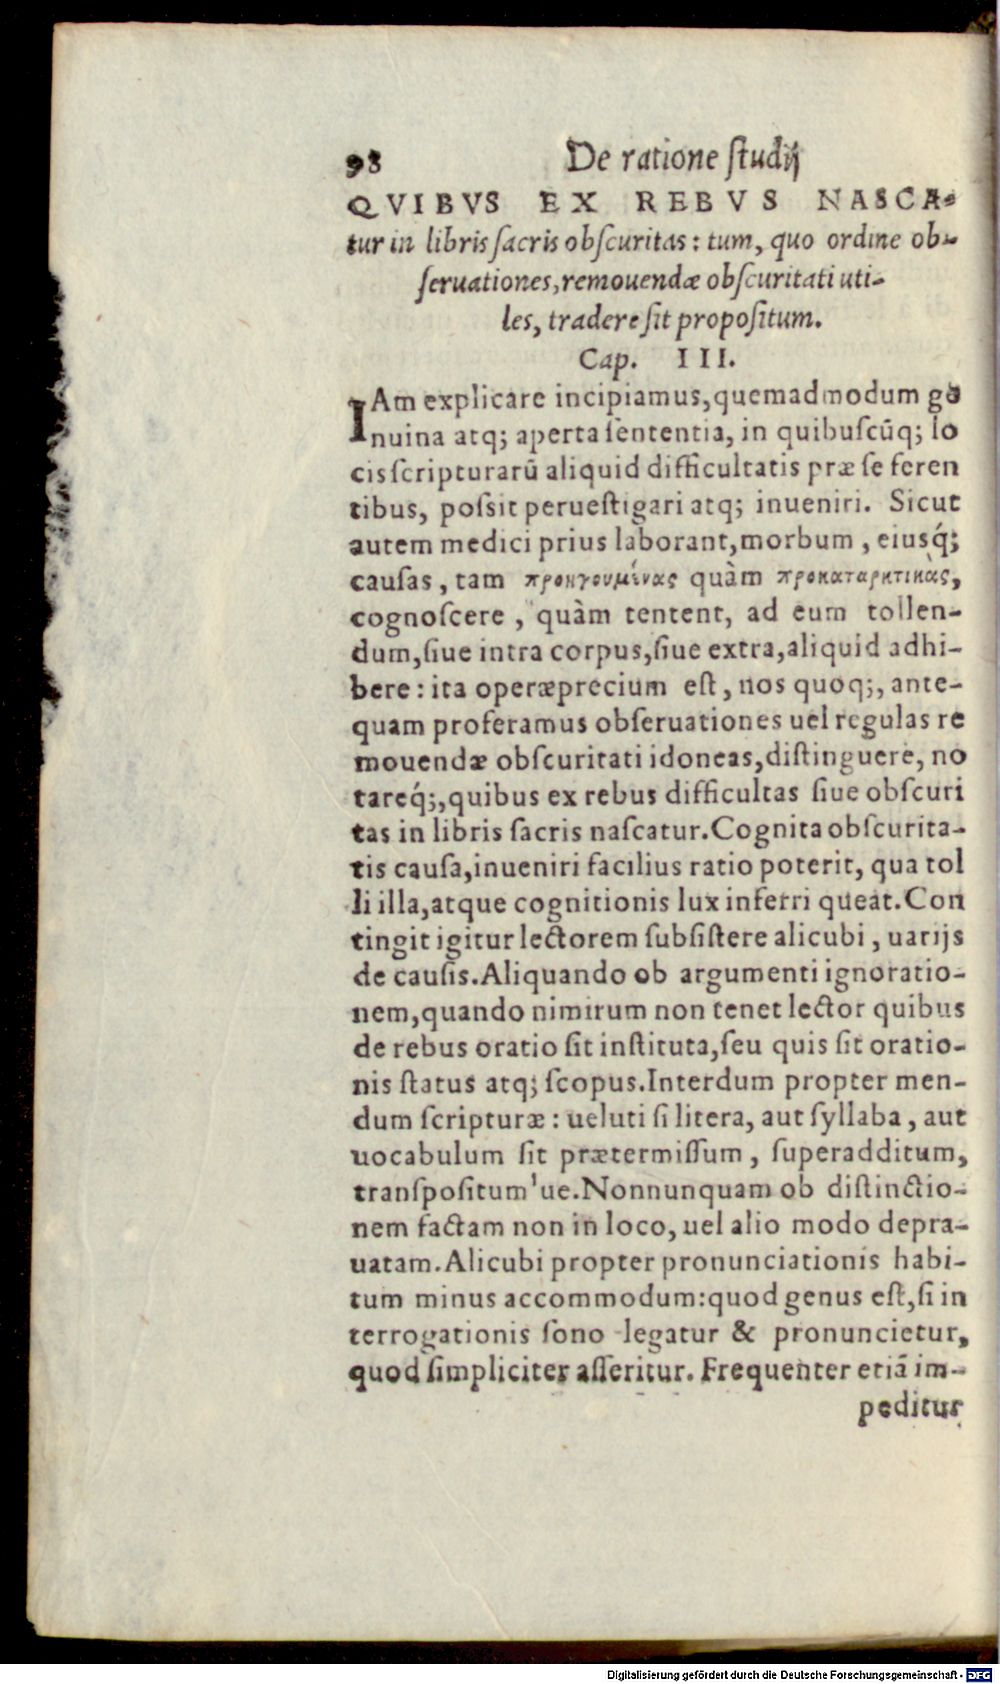 98 De ratione ſtudij
QVIBVS EX REBVS NASCA-
tur in libris ſacris obſcuritas: tum, quo ordine ob-
ſeruationes, remouendæ obſcuritati uti-
les, tradere ſit propoſitum.
Cap. III.
IAm explicare incipiamus, quemadmodum ge
nuina atq; aperta ſententia, in quibuſcūq; lo
cis ſcripturarū aliquid difficultatis præ ſe feren
tibus, poſsit perueſtigari atq; inueniri. Sicut
autem medici prius laborant, morbum, eiusq́;
cauſas, tam προηγουμένας quàm προκαταρκτικὰς,
cognoſcere, quàm tentent, ad eum tollen-
dum, ſiue intra corpus, ſiue extra, aliquid adhi-
bere: ita operæprecium eſt, nos quoq;, ante-
quam proferamus obſeruationes uel regulas re
mouendæ obſcuritati idoneas, diſtinguere, no
tareq́;, quibus ex rebus difficultas ſiue obſcuri
tas in libris ſacris naſcatur. Cognita obſcurita-
tis cauſa, inueniri facilius ratio poterit, qua tol
li illa, atque cognitionis lux inferri queat. Con
tingit igitur lectorem ſubſiſtere alicubi, uarijs
de cauſis. Aliquando ob argumenti ignoratio-
nem, quando nimirum non tenet lector quibus
de rebus oratio ſit inſtituta, ſeu quis ſit oratio-
nis ſtatus atq; ſcopus. Interdum propter men-
dum ſcripturæ: ueluti ſi litera, aut ſyllaba, aut
uocabulum ſit prætermiſſum, ſuperadditum,
tranſpoſitum'ue. Nonnunquam ob diſtinctio-
nem factam non in loco, uel alio modo depra-
uatam. Alicubi propter pronunciationis habi-
tum minus accommodum: quod genus eſt, ſi in
terrogationis ſono legatur & pronuncietur,
quod ſimpliciter aſſeritur. Frequenter etiā im-
peditur
Digitalisierung gefördert durch die Deutsche Forschungsgemeinschaft - DFG